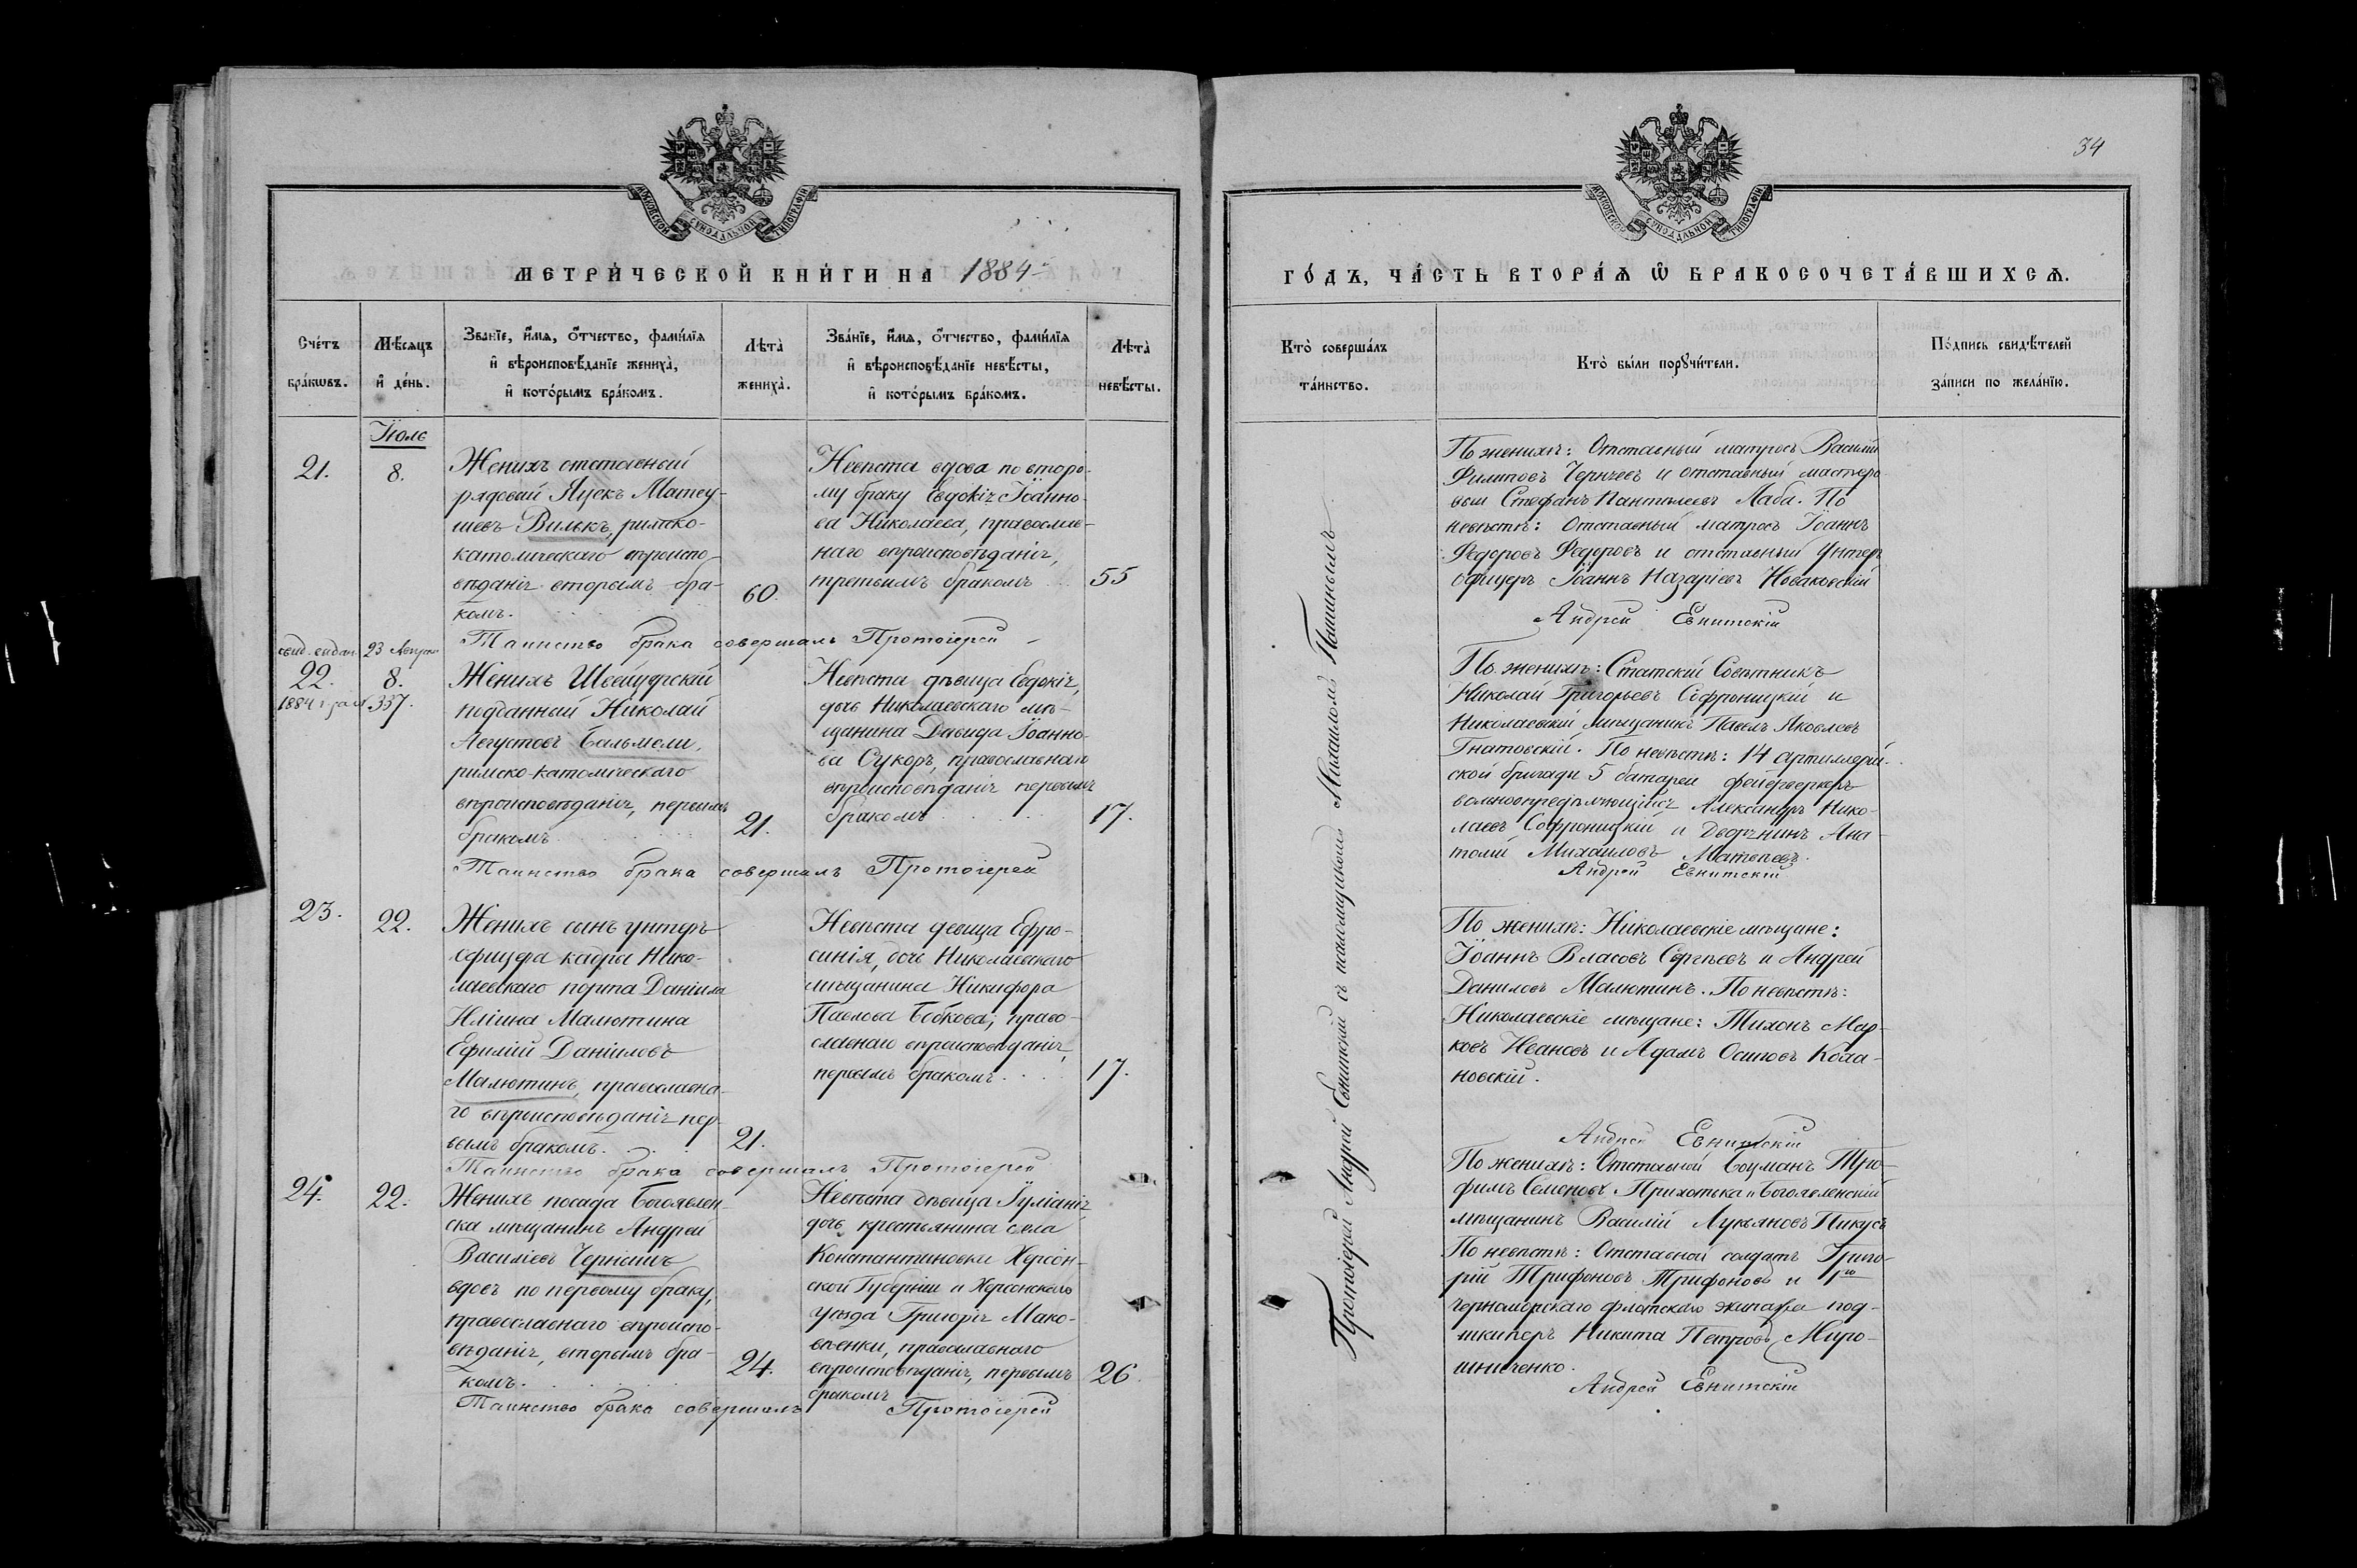 34
МОСКОВСКОЙ СѴНОДАЛЬНОЙ ТИПОГРАФІИ
МЕТРИ́ЧЕСКОЙ КНИ́ГИ НА 1884
Сче́тъ бра́кωвъ.
Мѣ́сяцъ и҆ де́нь.
Зва́нїе, и҆́мя, ѻ҆́тчество, фами́лїя
и҆ вѣроисповѣ́данїе жениха̀,
и҆ кото́рымъ бра́комъ.
Лѣта̀ жениха̀.
Зва́нїе, и҆́мя, ѻ҆́тчество, фами́лїя
и҆ вѣроисповѣ́данїе невѣ́сты,
и҆ кото́рымъ бра́комъ.
Лѣта̀ невѣ́сты.
Іюль
21.
8.
Женихъ отставный
рядовый Яцекъ Матеу-
шевъ Вилькъ, римско-
католическаго вѣроиспо-
вѣданія вторымъ бра-
комъ.
60.
Невѣста вдова по второ-
му браку Евдокія Іоанно-
ва Николаева, православ-
наго вѣроисповѣданія,
третьимъ бракомъ
55
Таинство брака совершалъ Протоіерей
свид. выдан. 23
22.
8.
1884 г. за № 337.
Женихъ Швейцарскій
подданный Николай
Августовъ Бальмели,
римско-католическаго
вѣроисповѣданія, первымъ
бракомъ
21.
Невѣста дѣвица Евдокія,
дочь Николаевскаго мѣ-
щанина Давида Іоанно-
ва Сукоръ, православнаго
вѣроисповѣданія первымъ
бракомъ
17.
Таинство брака совершалъ Протоіерей
23.
22.
Женихъ сынъ унтеръ
офицера кадра Нико-
лаевскаго порта Даніила
Иліина Малютина
Ефимій Даніиловъ
Малютинъ, православна-
го вѣроисповѣданія пер-
вымъ бракомъ.
21.
Невѣста девица Ефро-
синія, дочь Николаевскаго
мѣщанина Никифора
Павлова Бобкова, право-
славнаго вѣроисповѣданія,
первымъ бракомъ
17.
Таинство брака совершалъ Протоіерей
24.
22.
Женихъ посада Богоявлен-
ска мѣщанинъ Андрей
Василіевъ Чернышъ
вдовъ по первому браку,
православнаго вѣроиспо-
вѣданія, вторымъ бра-
комъ.
24.
Невѣста дѣвица Іуліанія
дочь крестьянина села
Константиновки Херсон-
ской Губерніи и Херсонскаго
уѣзда Григорія Мако-
вѣенки, православнаго
вѣроисповѣданія, первымъ
бракомъ
26.
Таинство брака совершалъ Протоіерей
МОСКОВСКОЙ СѴНОДАЛЬНОЙ ТИПОГРАФІИ
ГО́ДЪ, ЧА́СТЬ ВТОРА́Ѧ Ѽ БРАКОСОЧЕТА́ВШИХСѦ.
Кто̀ соверша́лъ
та́инство.
Кто̀ бы́ли порꙋчи́тели.
По́дпись свидѣ́телей
за́писи по жела́нїю.
Протоіерей Андрей Евнитскій съ псаломщикомъ Михаиломъ
По женихѣ: Отставный матросъ Василій
Филиповъ Чернчевъ и отставный мастеро-
вый Стефанъ Пантелеевъ Лаба. По
невѣстѣ: Отставный матросъ Іоаннъ
Федоровъ Федоровъ и отставный унтеръ
офицеръ Іоаннъ Назаріевъ Новаковскій
Андрей Евнитскій
По женихѣ: Статскій Совѣтникъ
Николай Григорьевъ Софроницкій и
Николаевскій мѣщанинъ Павелъ Яковлевъ
Гнатовскій. По невѣстѣ: 14 артиллерій-
ской бригады 5 батареи фейерверкеръ
вольноопредѣляющійся Александръ Нико-
лаевъ Софроницкій и Дворянинъ Ана-
толій Михаиловъ Матвѣевъ.
Андрей Евнитскій
По женихѣ: Николаевскіе мѣщане:
Іоаннъ Власовъ Сергѣевъ и Андрей
Даниловъ Малютинъ. По невѣстѣ:
Николаевскіе мѣщане: Тихонъ Мар-
ковъ Ивановъ и Адамъ Осиповъ Коха-
новскій.
Андрей Евнитскій
По женихѣ: Отставной Боцманъ Тро-
фимъ Семеновъ Прихотька и Богоявленскій
мѣщанинъ Василій Лукьяновъ Пикусъ
По невѣстѣ: Отставной солдатъ Григо-
рій Трифоновъ Трифоновъ и 1го
черноморскаго флотскаго экипажа под-
шкиперъ Никита Петровъ Миро-
шниченко.
Андрей Евнитскій